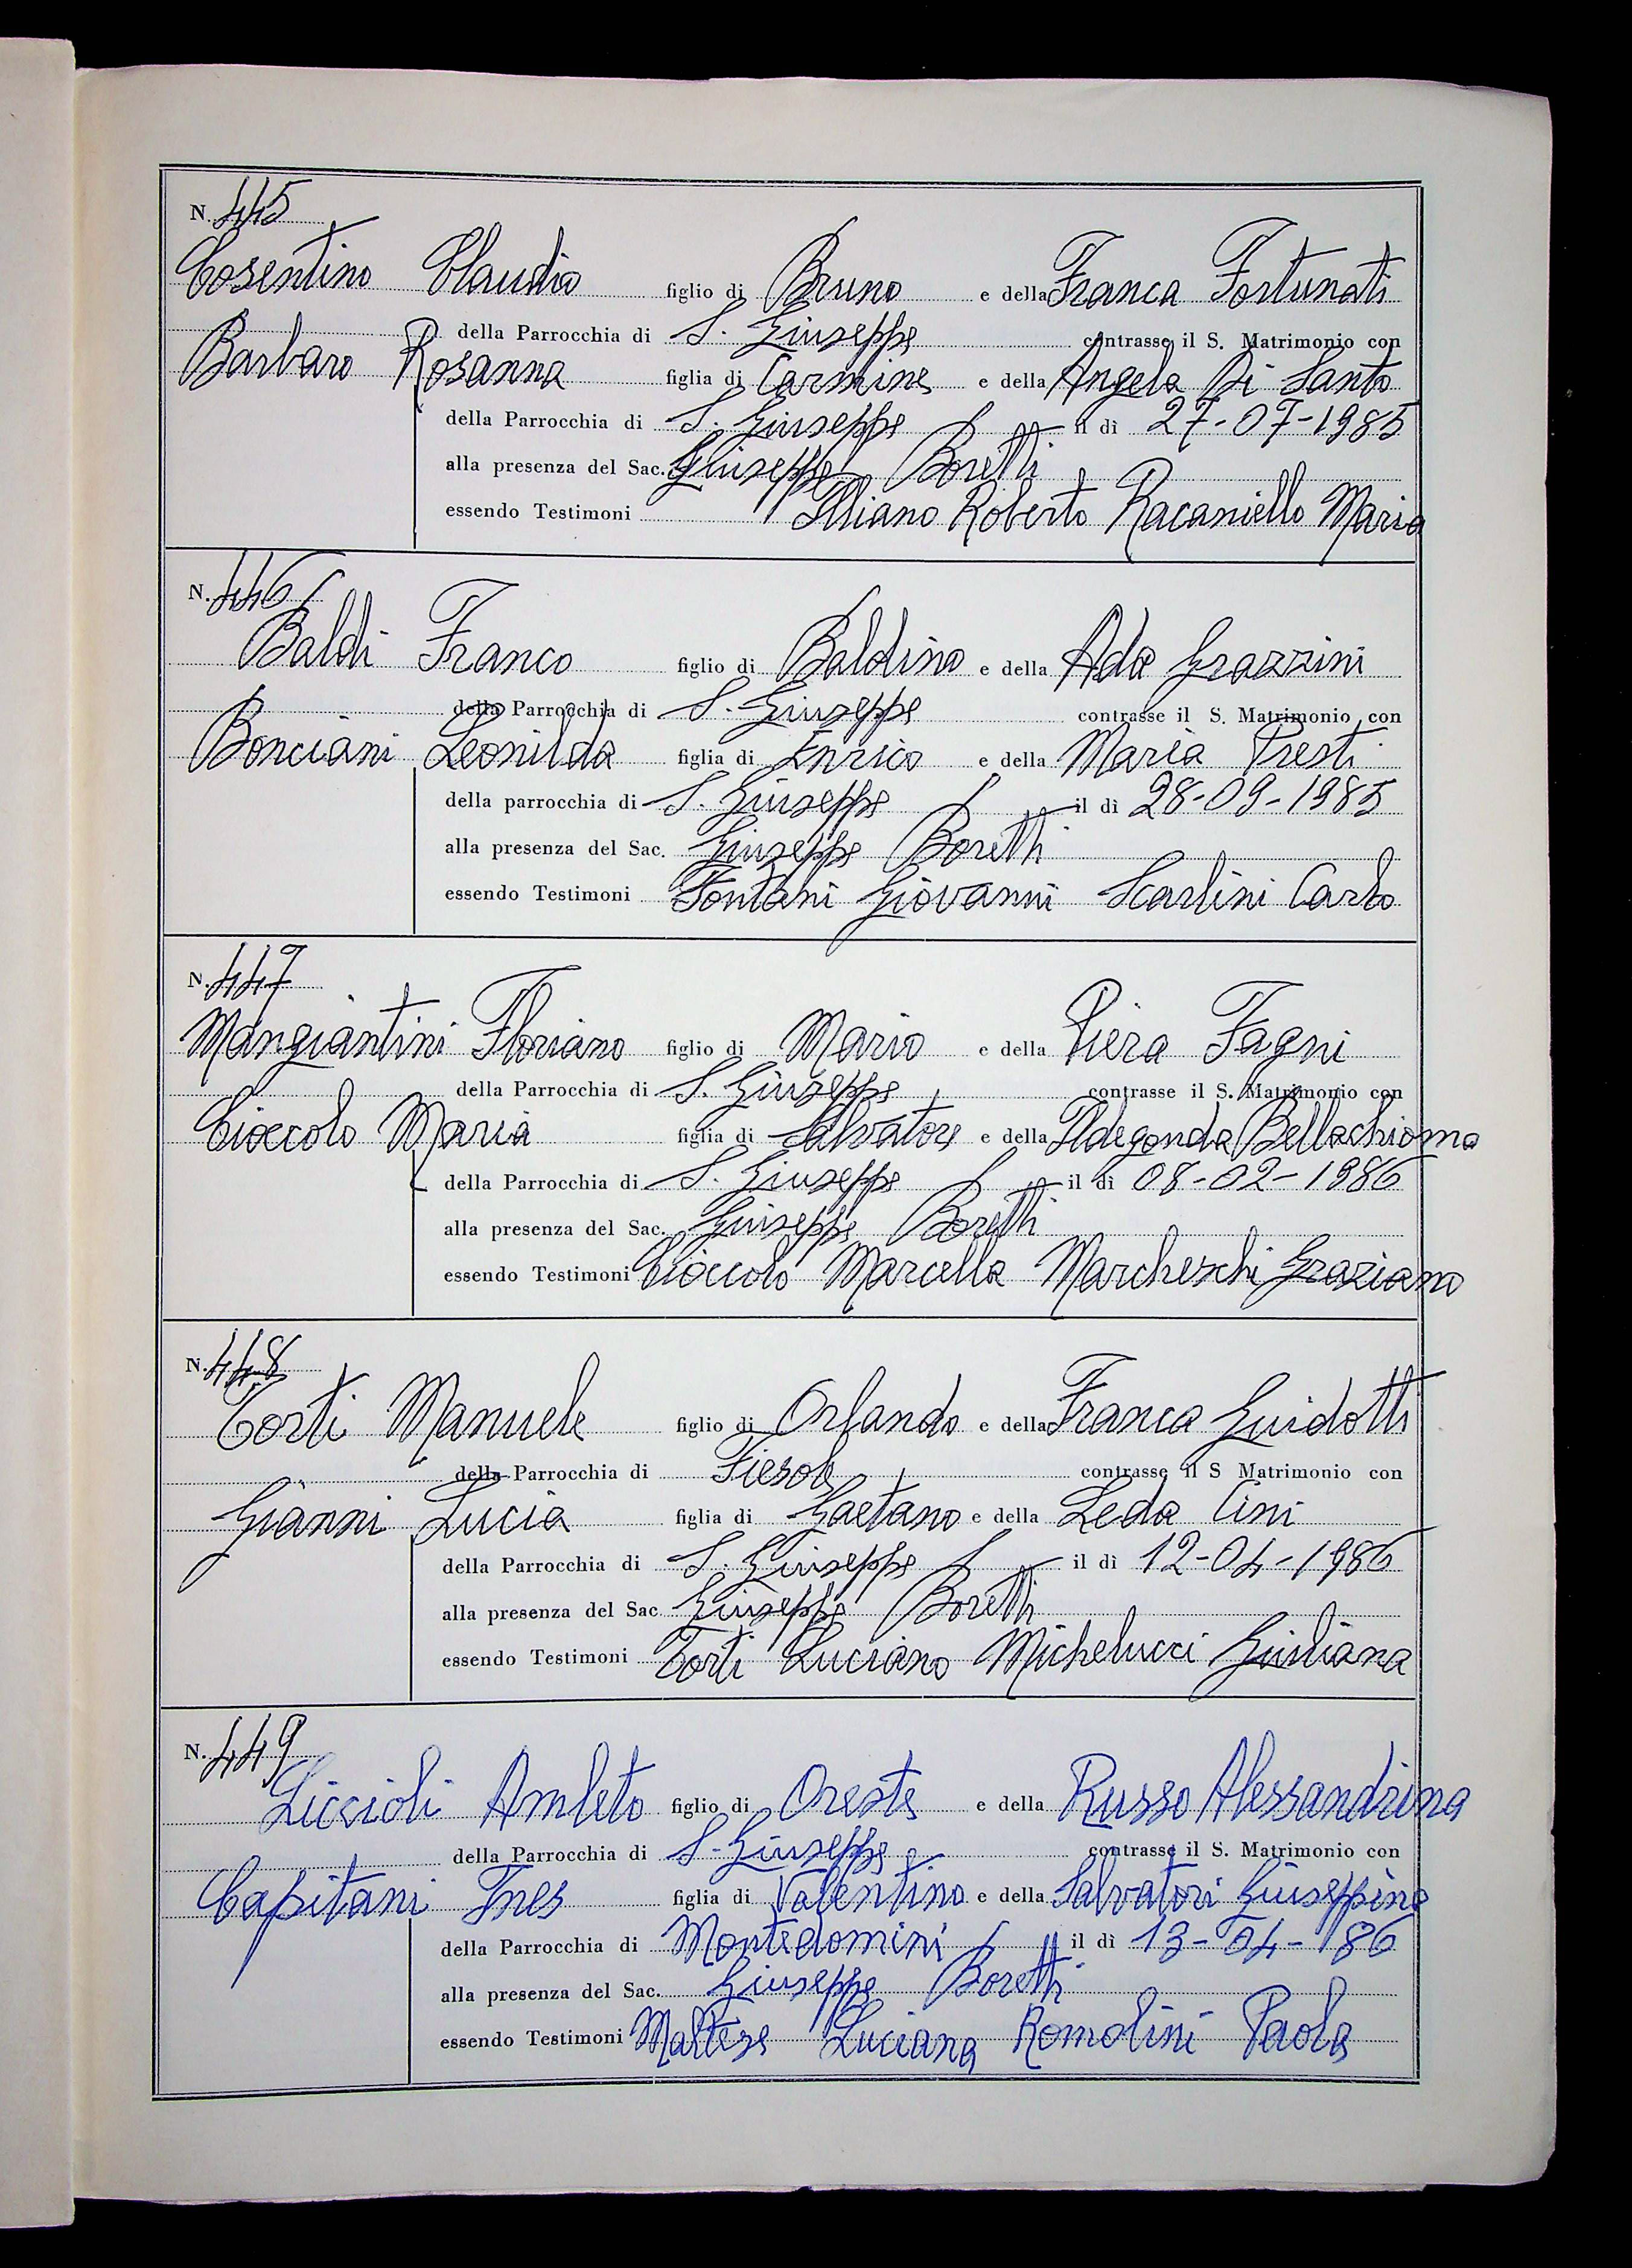 N. 445
Cosentino Claudio figlio di Bruno e della Franca Fortunati
della Parrocchia di S. Giuseppe contrasse il S. Matrimonio con
Barbaro Rosanna figlia di Carmine e della Angela Di Santo
della Parrocchia di S. Giuseppe il dì 27-07-1985
alla presenza del Sac. Giuseppe Boretti
essendo Testimoni Illiano Roberto Racaniello Maria
N. 446
Baldi Franco figlio di Baldino e della Ada Grazzini
della Parrocchia di S. Giuseppe contrasse il S. Matrimonio con
Bonciani Leonilda figlia di Enrico e della Maria Presti
della parrocchia di S. Giuseppe il dì 28-09-1985
alla presenza del Sac. Giuseppe Boretti
essendo Testimoni Fontani Giovanni Scarlini Carlo
N. 447
Mangiantini Floriano figlio di Mario e della Piera Fagni
della Parrocchia di S. Giuseppe contrasse il S. Matrimonio con
Cioccolo Maria figlia di Salvatore e della Ildegonda Bellachioma
della Parrocchia di S. Giuseppe il dì 08-02-1986
alla presenza del Sac. Giuseppe Boretti
essendo Testimoni Cioccolo Marcella Marcheschi Graziano
N. 448
Torti Manuele figlio di Orlando e della Franca Guidotti
della Parrocchia di Fiesole contrasse il S Matrimonio con
Gianni Lucia figlia di Gaetano e della Leda Cini
della Parrocchia di S. Giuseppe il dì 12-04-1986
alla presenza del Sac Giuseppe Boretti
essendo Testimoni Torti Luciano Michelucci Giuliana
N. 449
Liccioli Amleto figlio di Oreste e della Russo Alessandrina
della Parrocchia di S. Giuseppe contrasse il S. Matrimonio con
Capitani Ines figlia di Valentino e della Salvatori Giuseppina
della Parrocchia di Montedomini il dì 13-04-86
alla presenza del Sac. Giuseppe Boretti
essendo Testimoni Maltese Luciana Romolini Paola